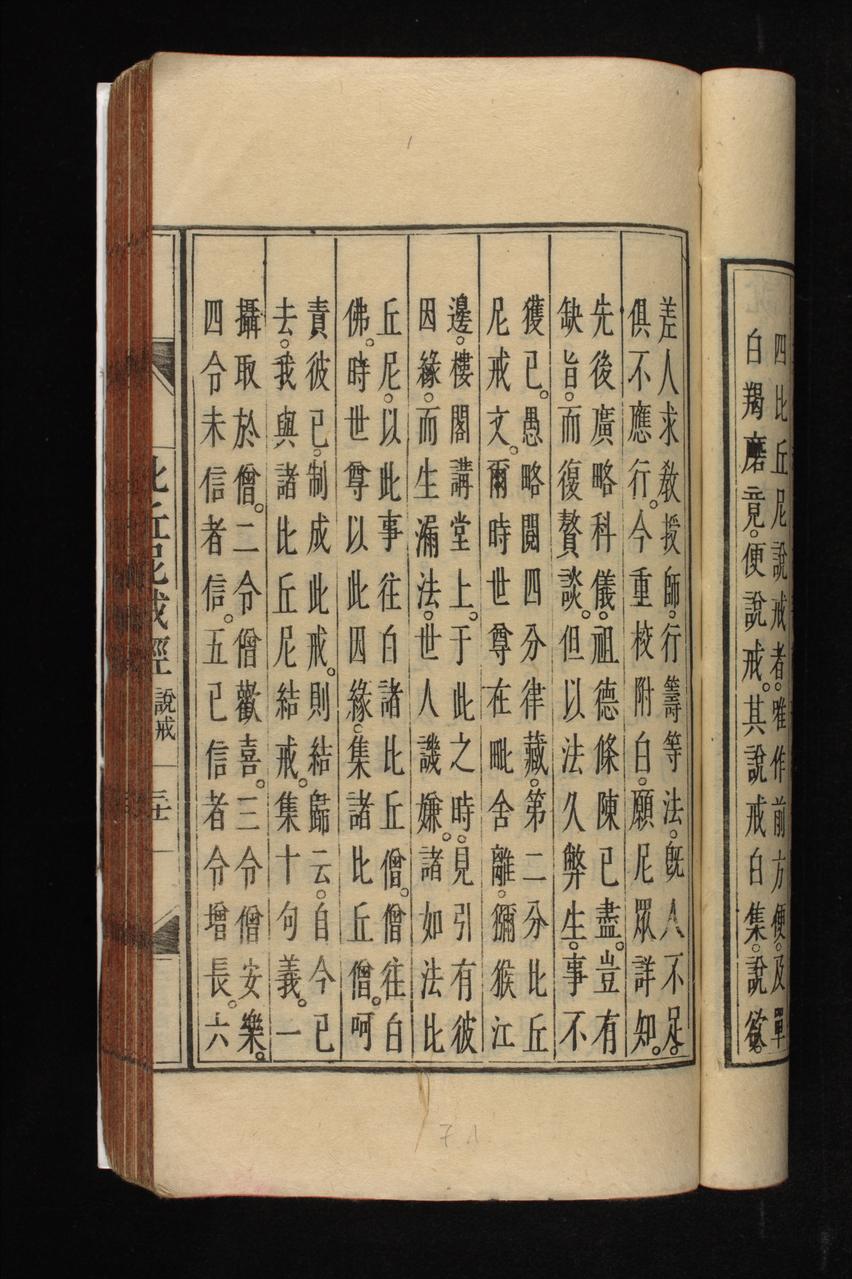 四比丘尼說戒者。唯作前方便。及單
白羯磨竟。便說戒。其說戒白集。說欲。
差人求教授師。行籌等法。既人不足。
俱不應行。今重校附白。願尼眾詳知。
先後廣略科儀。祖德條陳已盡。豈有
缺旨。而復贅談。但以法久弊生。事不
獲已。愚略閱四分律藏。第二分比丘
尼戒文。爾時世尊在毗舍離。獼猴江
邊。樓閣講堂上。于此之時。見引有彼
因緣。而生漏法。世人譏嫌。諸如法比
丘尼。以此事往白諸比丘僧。僧往白
佛。時世尊以此因緣。集諸比丘僧。呵
責彼已。制成此戒。則結歸云。自今已
去。我與諸比丘尼結戒。集十句義。一
攝取於僧。二令僧歡喜。三令僧安樂。
四令未信者信。五已信者令增長。六
比丘尼戒經 說戒
7 1